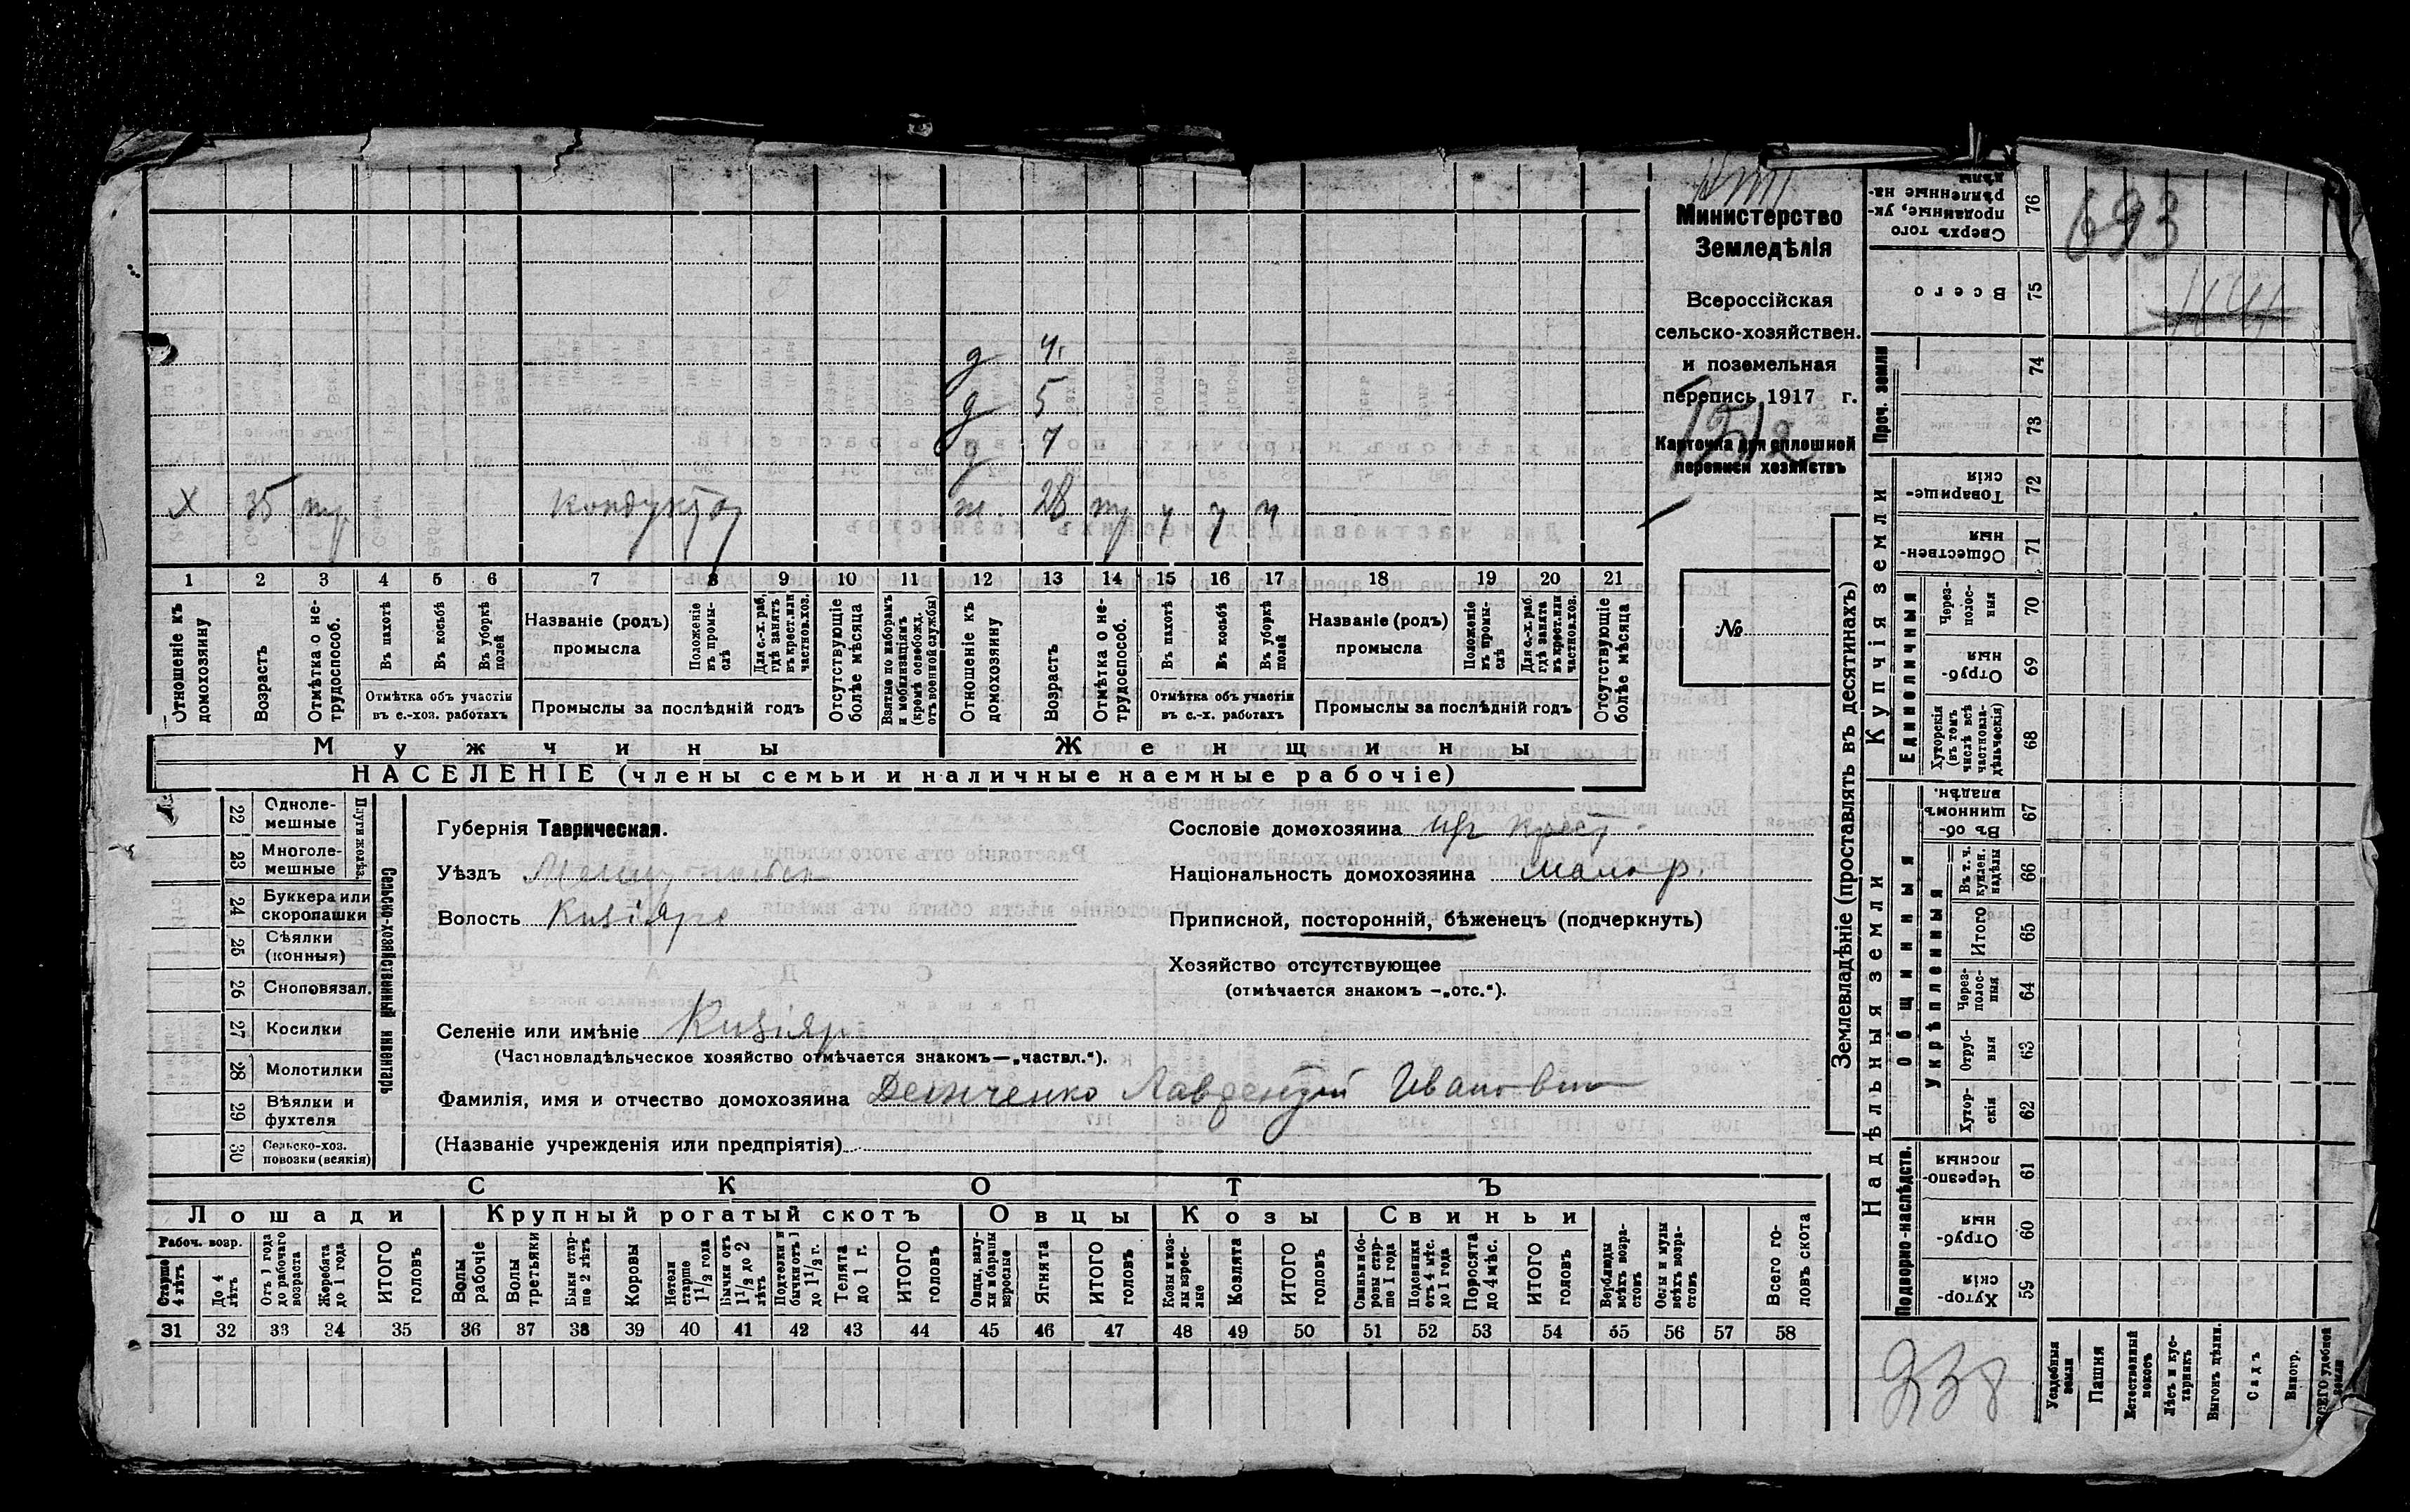 Министерство
Земледѣлія
Всероссійская
сельско-хозяйствен.
и поземельная
перепись 1917 г.
Карточка для сплошной
переписи хозяйствъ
№
д 4
д 5
д 7
х 35 кондуктор ж. 28
1 2 3 4 5 6 7 8 9 10 11 12 13 14 15 16 17 18 19 20 21
Отношеніе къ домохозяину
Возрастъ
Отмѣтка о не-трудоспособ.
Въ пахотѣ
Въ косьбѣ
Въ уборкѣ полей
Отмѣтка объ участіи въ с.-хоз. работахъ
Названіе (родъ) промысла
Положеніе въ промыслѣ
Для с.-х. раб, гдѣ занятъ въ крест. или частнов. хоз.
Промыслы за послѣдній годъ
Отсутствующіе болѣе мѣсяца
Взятые по наборамъ и мобилизаціямъ (кромѣ освобожд. отъ военной службы)
Отношеніе къ домохозяину
Возрастъ
Отмѣтка о не-трудоспособ.
Въ пахотѣ
Въ косьбѣ
Въ уборкѣ полей
Отмѣтка объ участіи въ с.-х. работахъ
Названіе (родъ) промысла
Положеніе въ промыслѣ
Для с.-х. раб. гдѣ занята въ крест. или частнов. хоз.
Промыслы за послѣдній годъ
Отсутствующіе болѣе мѣсяца
Мужчины Женщины
НАСЕЛЕНІЕ (члены семьи и наличные наемные рабочіе)
22 Однолемешные
23 Многолемешные
Плуги желѣз.
24 Буккера или скоропашки
25 Сѣялки (конныя)
26 Сноповязал.
27 Косилки
28 Молотилки
29 Вѣялки и фухтеля
30 Сельско-хоз. повозки (всякія)
Сельско-хозяйственный инвентарь
Губернія Таврическая.
Уѣздъ
Волость Кизіяре
Селеніе или имѣніе Кизіяр
(Частновладѣльческое хозяйство отмѣчается знакомъ—„частвл.“).
Фамилія, имя и отчество домохозяина Демченко Лаврентий Иванович
(Названіе учрежденія или предпріятія)
Сословіе домохозяина крест.
Національность домохозяина малор.
Приписной, посторонній, бѣженецъ (подчеркнуть)
Хозяйство отсутствующее
(отмѣчается знакомъ —„отс.“).
СКОТЪ
Лошади Крупный рогатый скотъ Овцы Козы Свиньи
Рабоч. возр.
Старше 4 лѣтъ
До 4 лѣтъ
Отъ 1 года до рабочаго возраста
Жеребята до 1 года
ИТОГО головъ
Волы рабочіе
Волы третьяки
Быки старше 2 лѣтъ
Коровы
Нетели старше 1 1/2 года
Бычки отъ 1 1/2 до 2 лѣтъ
Подтелки и бычки отъ 1 до 1 1/2 г.
Телята до 1 г.
ИТОГО головъ
Овцы, валухи и бараны взрослые
Ягнята
ИТОГО головъ
Козы и козлы взрослые
Козлята
ИТОГО головъ
Свиньи и боровы старше 1 года
Подсвинки отъ 4 мѣс. до 1 года
Поросята до 4 мѣс.
ИТОГО головъ
Верблюды всѣхъ возрастовъ
Ослы и мулы всѣхъ возрастовъ
Всего головъ скота
31 32 33 34 35 36 37 38 39 40 41 42 43 44 45 46 47 48 49 50 51 52 53 54 55 56 57 58
Землевладѣніе (проставлять въ десятинахъ)
Купчія земли
Надѣльныя земли
Сверхъ того проданные, укрѣпленные надѣлы 76
693
Всего 75
Проч. земли
74
73
Товарищескія 72
Общественныя 71
Единоличныя
Черезполосныя 70
Отрубныя 69
Хуторскія (въ томъ числѣ всѣ частновладѣльческія) 68
Общинныя
Въ общинномъ владѣн. 67
Укрѣпленныя
Въ т. ч. куплен. надѣлы 66
Итого 65
Черезполосныя 64
Отрубныя 63
Хуторскія 62
Подворно-наслѣдств.
Черезполосныя 61
Отрубныя 60
Хуторскія 59
938
Усадебныя земли
Пашня
Естественный покосъ
Лѣсъ и кустарникъ
Выгонъ цѣлин.
Садъ
Виногр.
ВСЕГО удобной земли